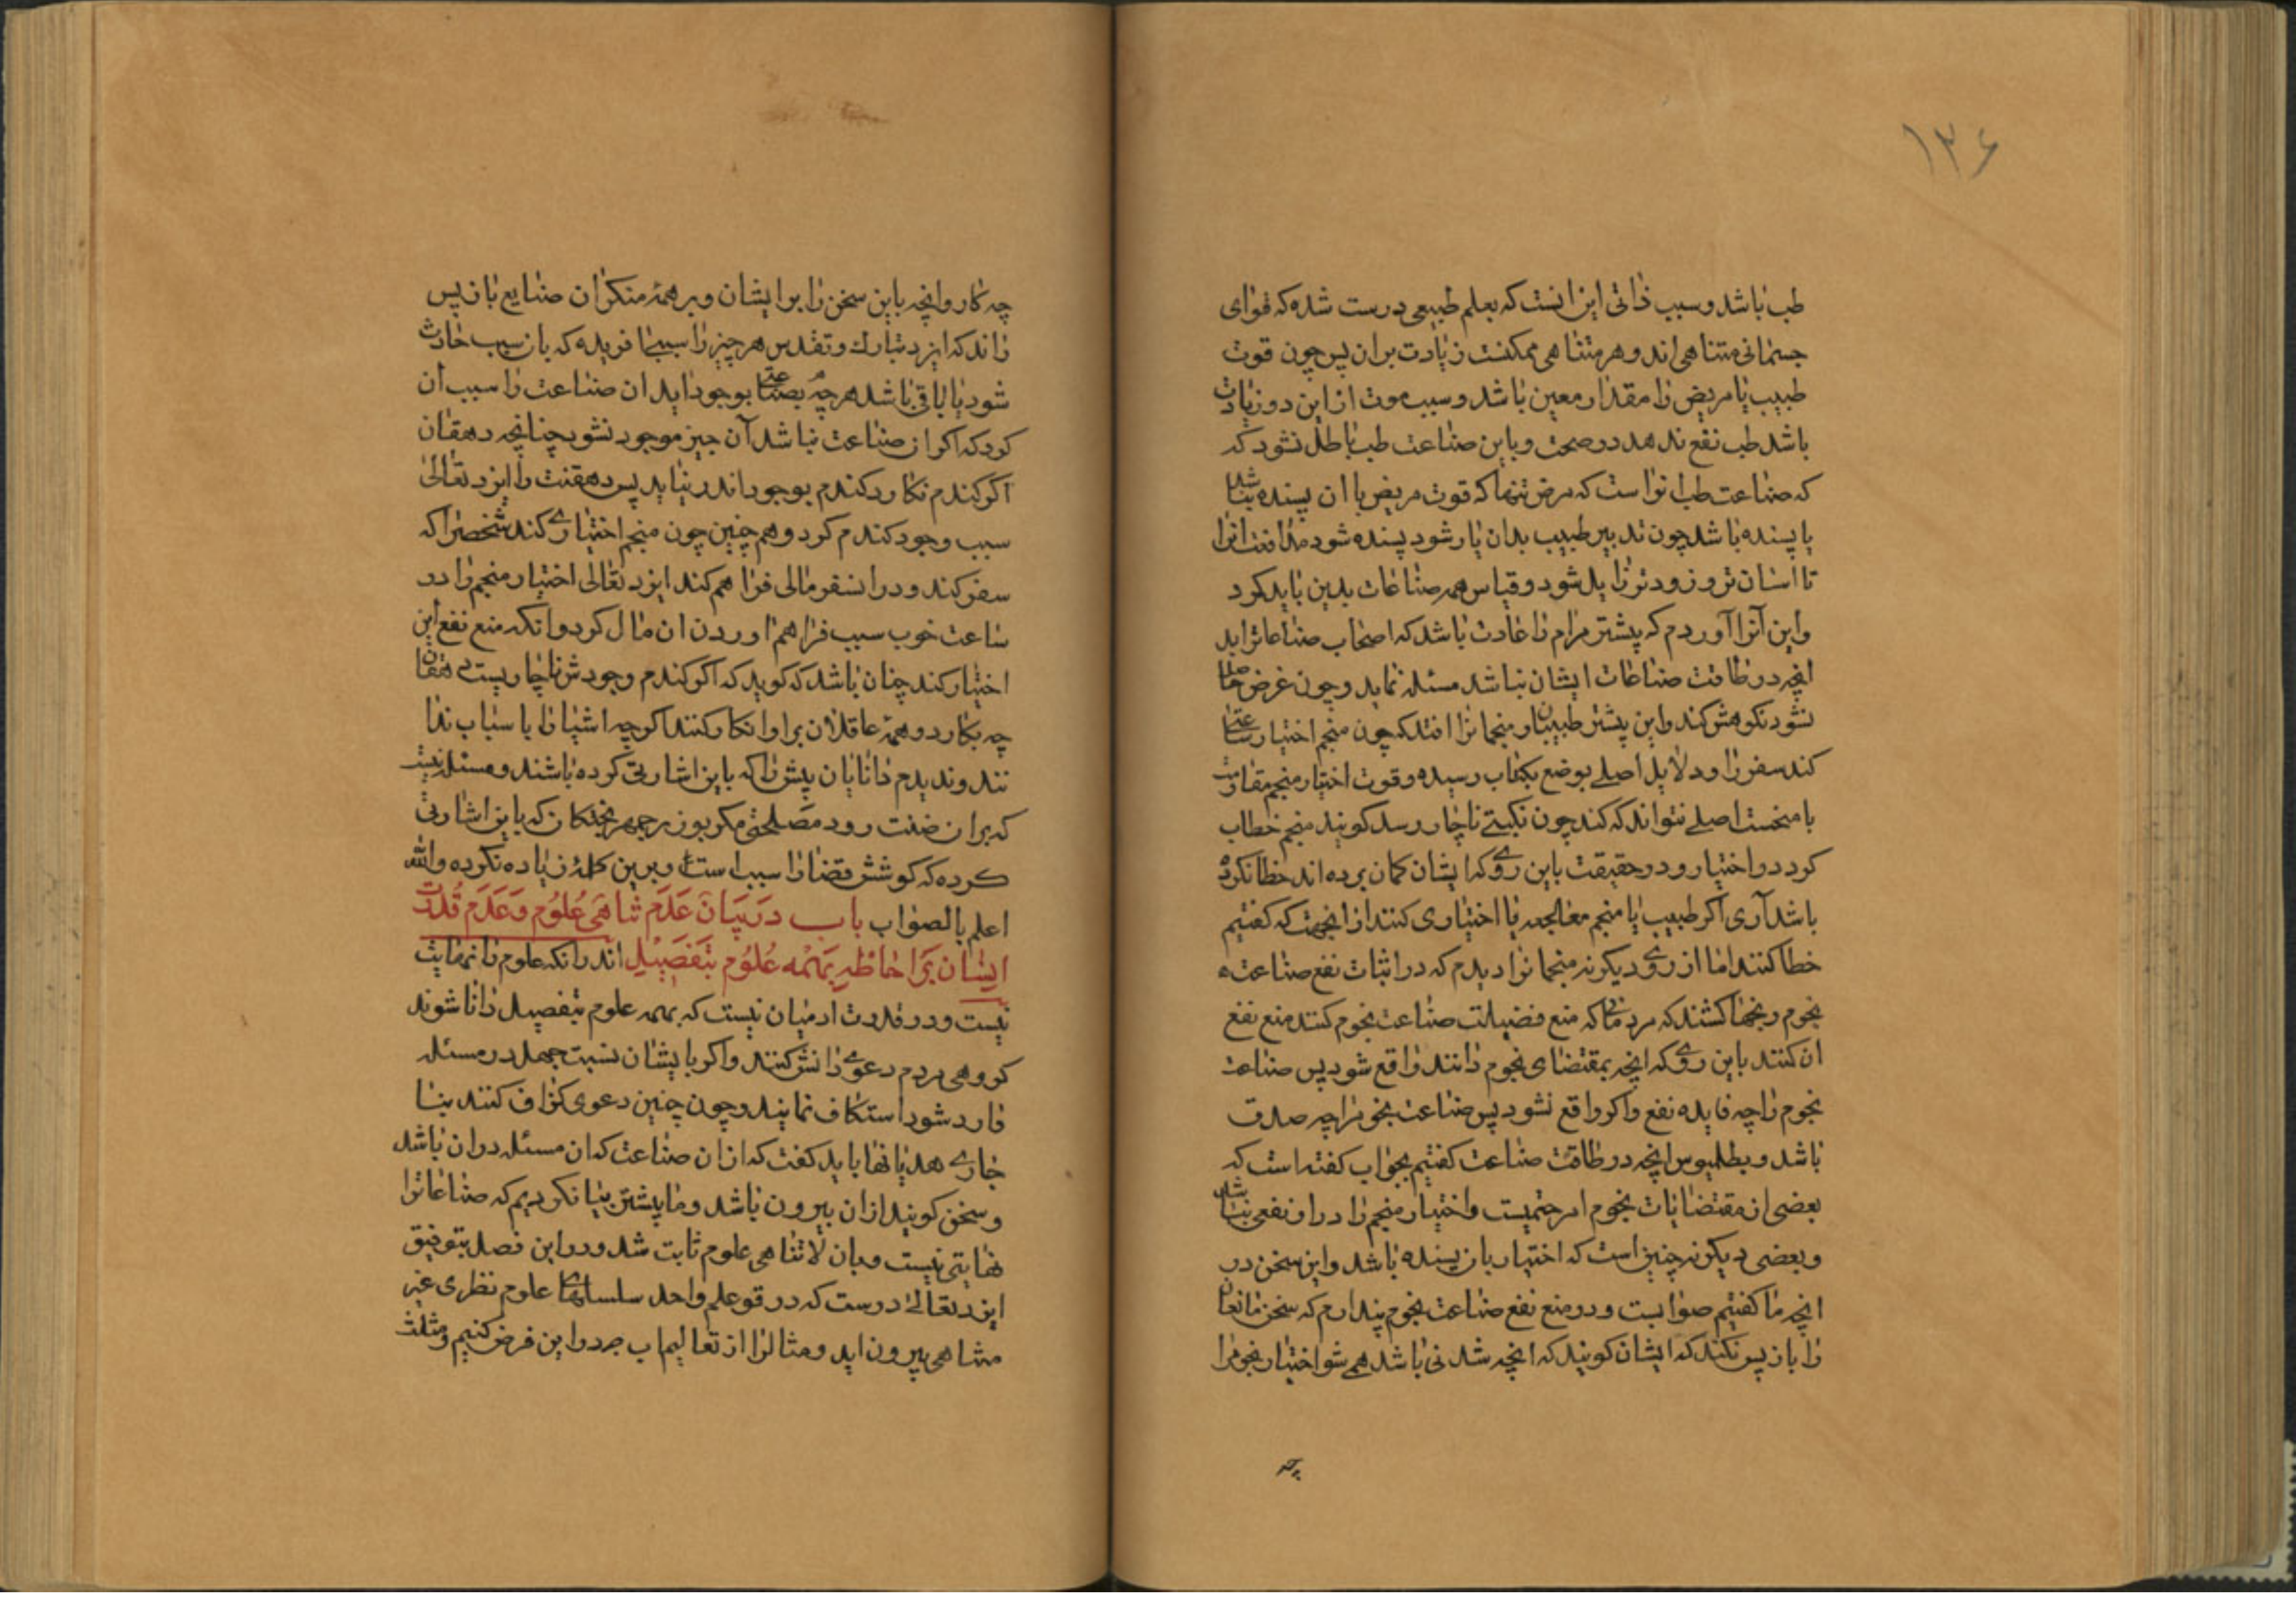 ۱۳۶
طب باشد و سبب ذاتی این انست که بعلم طبیعی درست شده که قوای
جسمانی متناهی اند و هر متناهی ممکنست زیادت بران پس چون قوت
طبیب یا مریض را مقدار معین باشد و سبب موت از این دو زیادت
باشد طب نفع ندهد در صحت و باین صناعت طب باطل نشود که
که صناعت طب انرا است که مرض تنها که قوت مریض با ان بسنده نباشد
یا بسنده باشد چون تدبیر طبیب بدان یار شود بسنده شود مدافعت انرا
تا اسان تر و زودتر زایل شود و قیاس همه صناعات بدین باید کرد
و این آنرا آوردم که پیشتر مردم را عادت باشد که اصحاب صناعاترا بد
انچه در طاقت صناعات ایشان نباشد مسئله نماید و چون غرض حاصل
نشود نکوهش کند و این پیشتر طبیبان و منجمانرا افتد که چون منجم اختیار ساعتی
کند سفر را و دلایل اصلی بوضع بکتاب رسیده و قوت اختیار منجم مقاومت
با منحست اصلی نتواند که کند چون نکبتی ناچار رسد کویند منجم خطاب
کرد در اختیار و در حقیقت باین روی که ایشان کمان برده اند خطا نکرده
باشد آری اکر طبیب یا منجم معالجه یا اختیاری کنند از انجهت که کفتیم
خطا کنند اما از روی دیکر نه منجمانرا دیدم که در اثبات نفع صناعت
نجوم رنجها کشند که مردمانی که منع فضیلت صناعت نجوم کنند منع نفع
ان کنند باین روی که انچه بمقتضای نجوم دانند واقع شود پس صناعت
نجوم را چه فایده نفع و اکر واقع نشود پس صناعت نجومرا چه صدق
باشد و بطلمیوس انچه در طاقت صناعت کفتیم بجواب کفته است که
بعضی از مقتضایات نجوم امر حتمیست و اختیار منجم را در او نفعی نباشد
و بعضی دیکر نه چنین است که اختیار بان بسنده باشد و این سخن در
انچه ما کفتیم صوابست و در منع نفع صناعت نجوم پندارم که سخن مانعان
را باز پس نکند که ایشان کویند که انچه شدنی باشد همی شو اختیار نجومرا
چه
چه کار و انچه باین سخن را بر ایشان و بر همهٔ منکران صنایع باز پس
راند که ایزد تبارک و تقدس هر چیز را سببی افریده که بان سبب حادث
شود یا باقی باشد هر چه بصناعتی بوجود اید ان صناعت را سبب ان
کرد که اکر ان صناعت نباشد آن چیز موجود نشود چنانچه دهقان
اکر کندم نکارد کندم بوجود اندر نیاید پس دهقنت را ایزد تعالی
سبب وجود کندم کرد و هم چنین چون منجم اختیاری کند شخصرا که
سفر کند و در انسفر مالی فراهم کند ایزد تعالی اختیار منجم را در
ساعت خوب سبب فراهم اوردن ان مال کرد و انکه منع نفع این
اختیار کند چنان باشد که کوید که اکر کندم وجودش ناچاریست دهقان
چه بکارد و همهٔ عاقلان بر او انکار کنند اکرچه اشیا را باسباب ندا
نند و ندیدم دانایان پیش را که باین اشارتی کرده باشند و مسئله نیست
که بران ضنت رود مصلحتی مکر بوزرجمهر بختکان که باین اشارتی
کرده که کوشش قضا را سبب است و برین کلمهٔ زیاده نکرده والله
اعلم بالصواب باب در بیان عدم تناهی علوم و عدم قدرت
ایشان بر احاطه بهمه علوم بتفصیل اند رانکه علوم را نهایت
نیست و در قدرت ادمیان نیست که بهمه علوم بتفصیل دانا شوند
کروهی مردم دعوی دانش کنند و اکر بایشان نسبت جهل در مسئله
وارد شود استنکاف نمایند و چون چنین دعوی کزاف کنند بنا
چاری هذیانها باید کفت که از ان صناعت که ان مسئله در ان باشد
و سخن کویند از ان بیرون باشد و ما پیشتر بیان کردیم که صناعاترا
نهایتی نیست و بان لاتناهی علوم ثابت شد و در این فصل بتوفیق
ایزد تعالی درست که در قوعلم واحد سلسلهای علوم نظری غیر
متناهی بیرون اید و مثالرا از تعالیم اب جد را بن فرض کنیم و مثلث